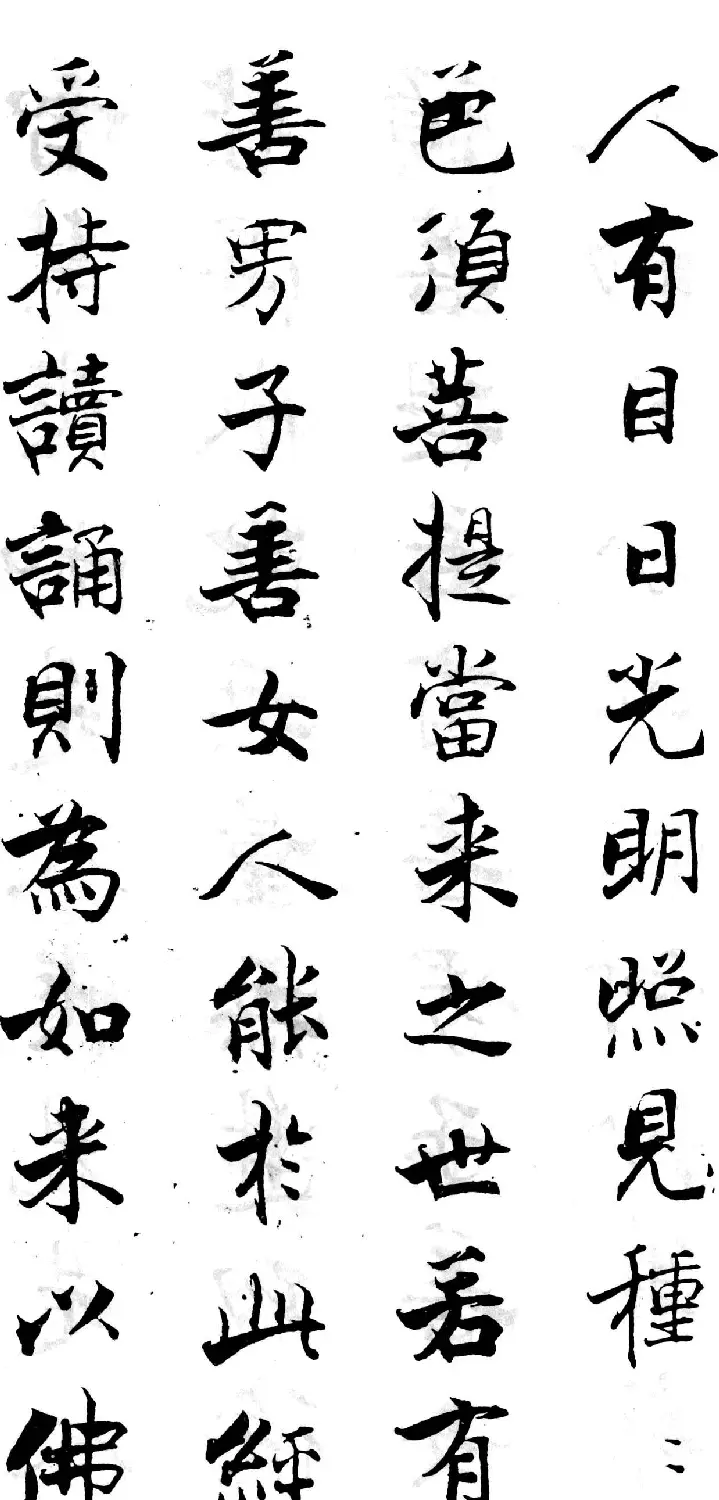 人有目日光明照見種〻
色須菩提當来之世若有
善男子善女人能於此經
受持讀誦則為如来以佛